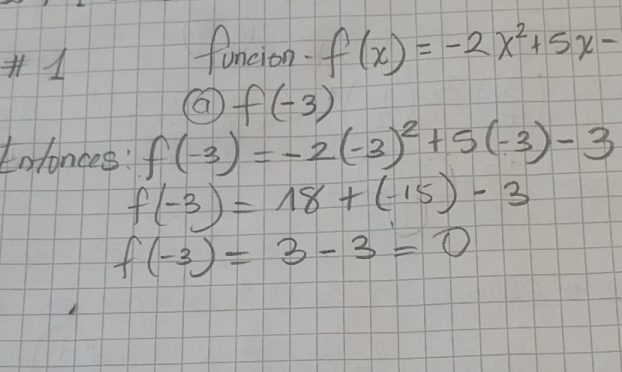 # 1 funcion - f(x) = -2x² + 5x -
ⓐ f(-3)
Entonces: f(-3) = -2(-3)² + 5(-3) - 3
f(-3) = 18 + (-15) - 3
f(-3) = 3 - 3 = 0